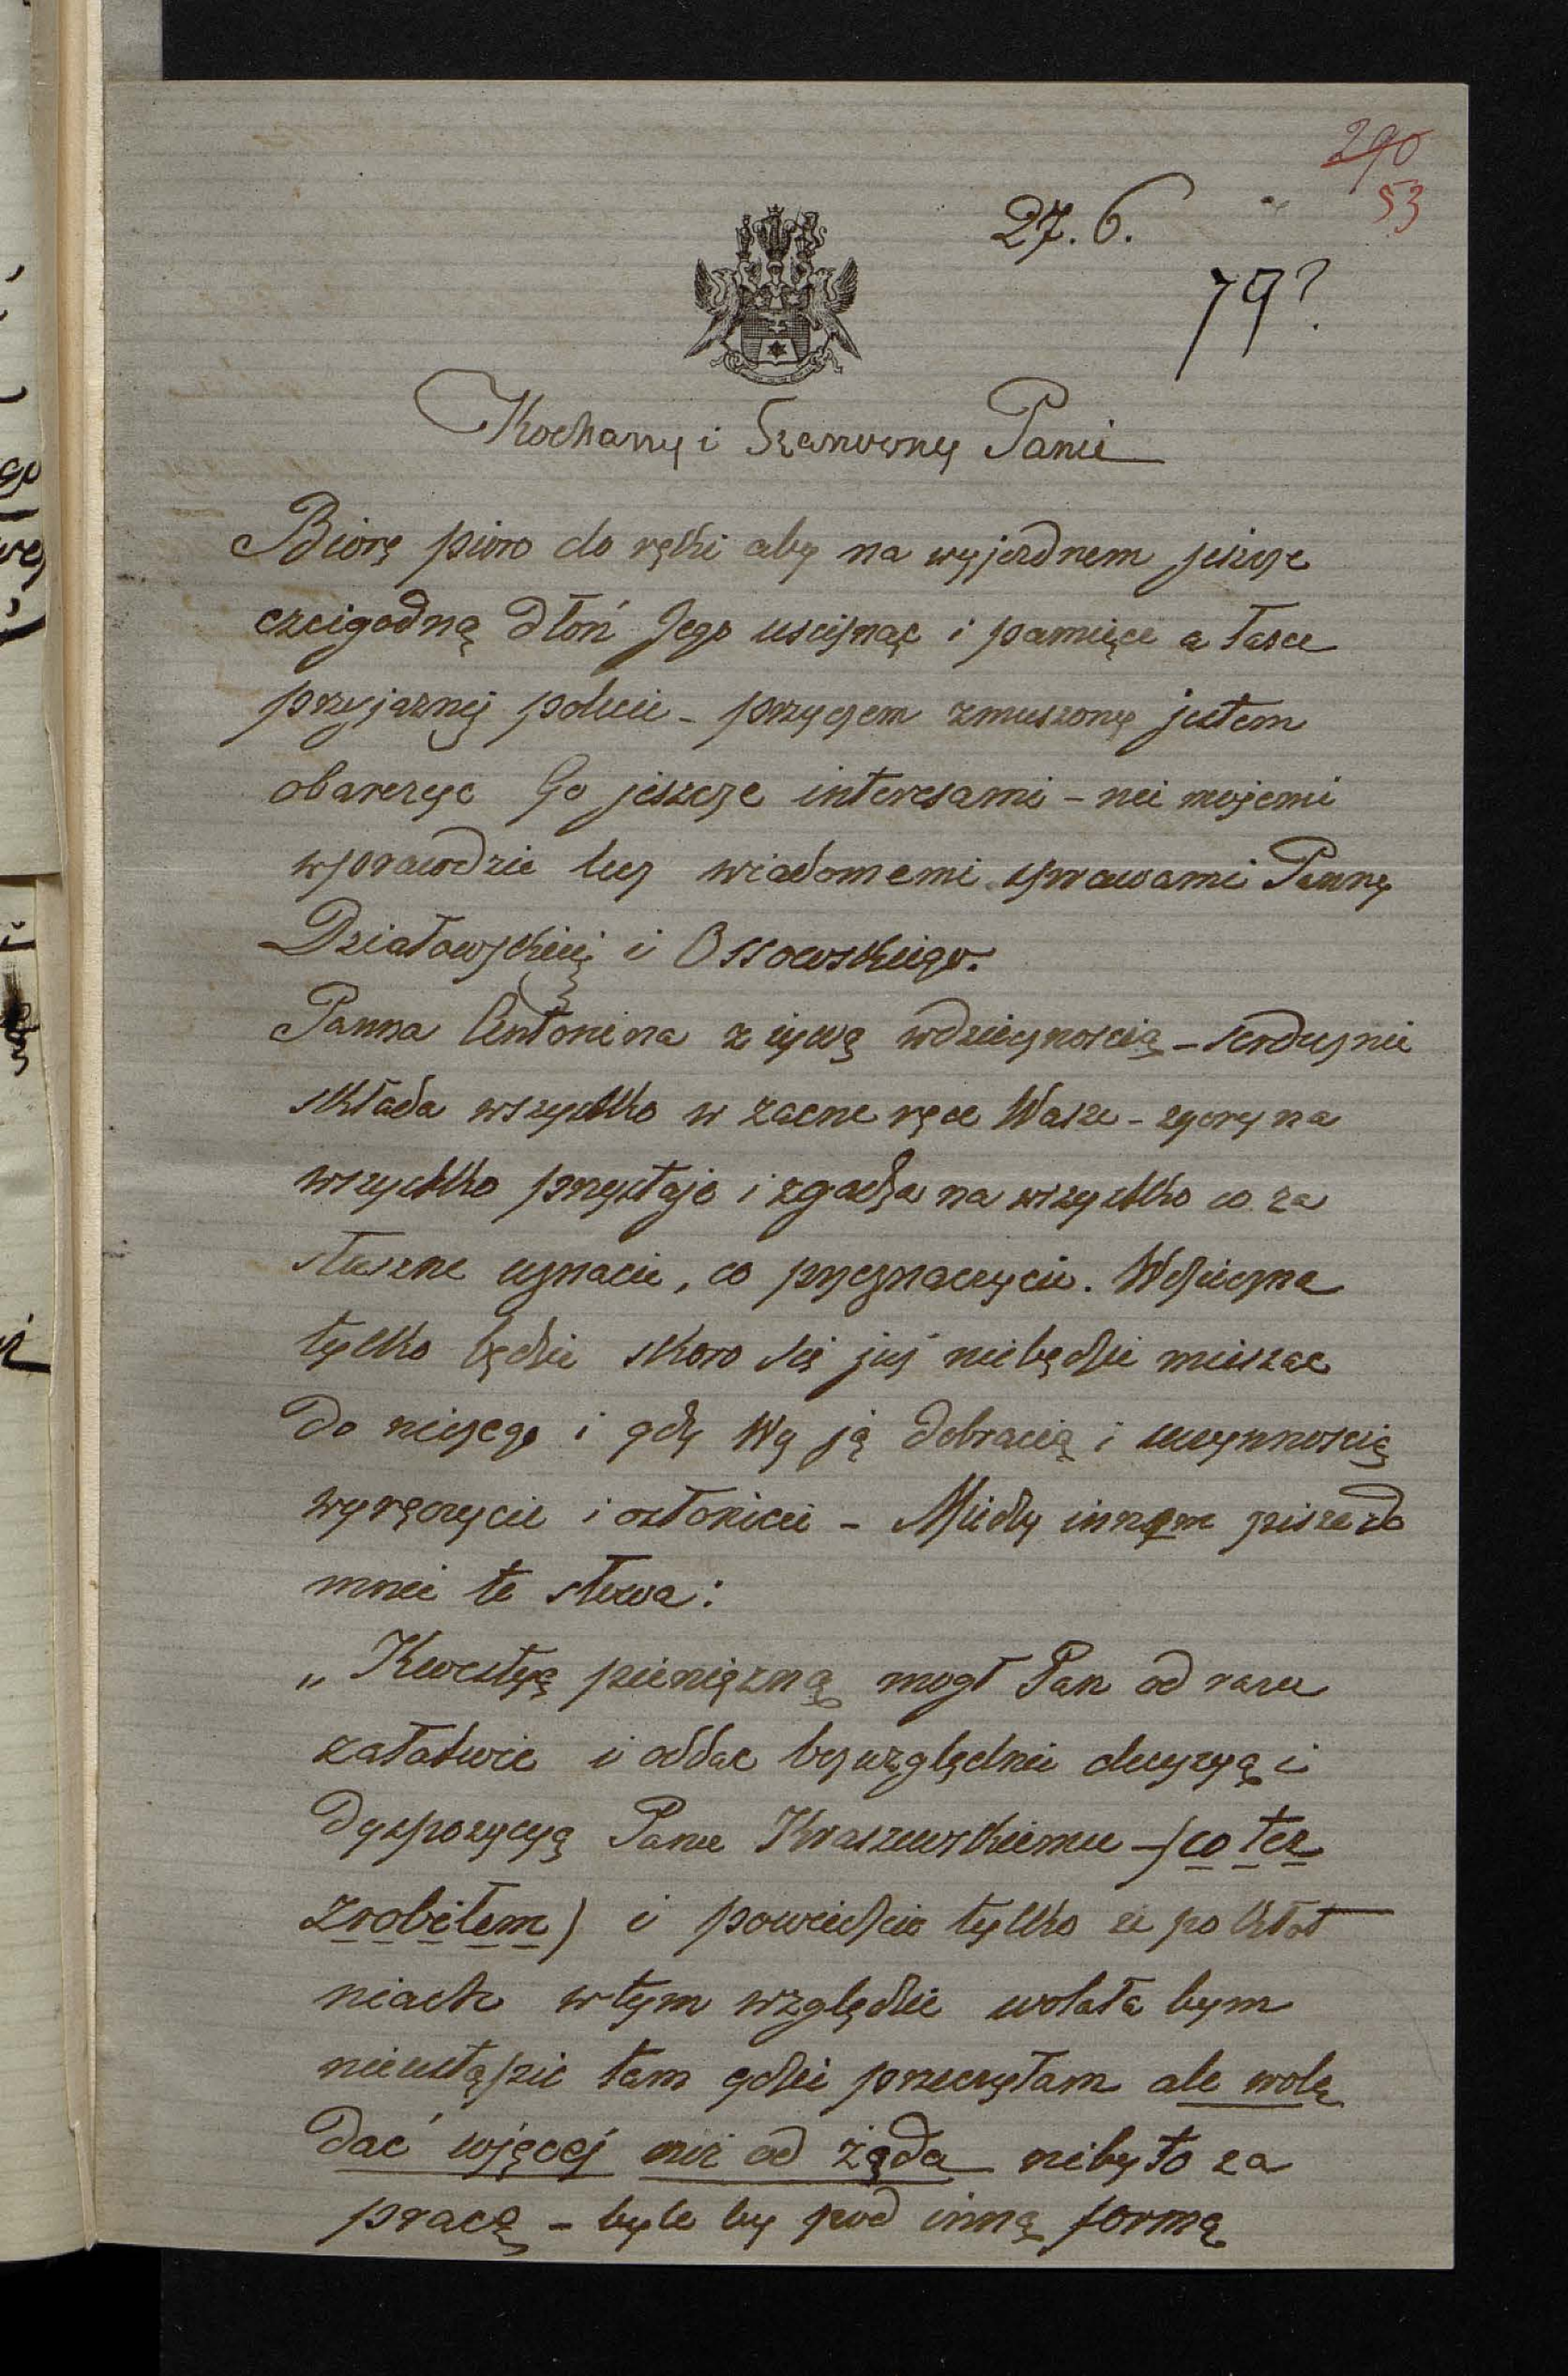 290
53
27. 6.
79?
Kochany i Szanowny Panie
Biorę pioro do ręki aby na wyjezdnem jeszcze
czcigodną dłoń Jego uscisnąc i pamięci a łasce
przyjaznej polecic - przyczem zmuszony jestem
obarczyc Go jeszcze interesami - nie mojemi
wprawdzie lecz wiadomemi sprawami Panny
Działowskiej i Ossowskiego.
Panna Antonina z żywą wdzięcznoscią - serdecznie
składa wszystko w zacne ręce Wasze - zgory na
wszystko przystaje i zgadza na wszystko co za
słuszne uznacie, co przeznaczycie. Wdzięczna
tylko będzie skoro się już niebędzie mieszac
do niczego i gdy Wy ją dobrocią i uczynnoscią
wyręczycie i osłonicie - Między innem pisze do
mnie te słowa:
„Kwestyę pieniężną mogł Pan od razu
załatwic i oddac bezwzględnie decyzyą i
dyspozycyą Panu Kraszewskiemu - (co tez
zrobiłem) i powiedzcie tylko ze po kłot
niach w tym względzie wolała bym
nieustąpic tam gdzie przeczytam ale wolę
dać więcej niż od żąda niby to za
pracę - byle by pod inną formą